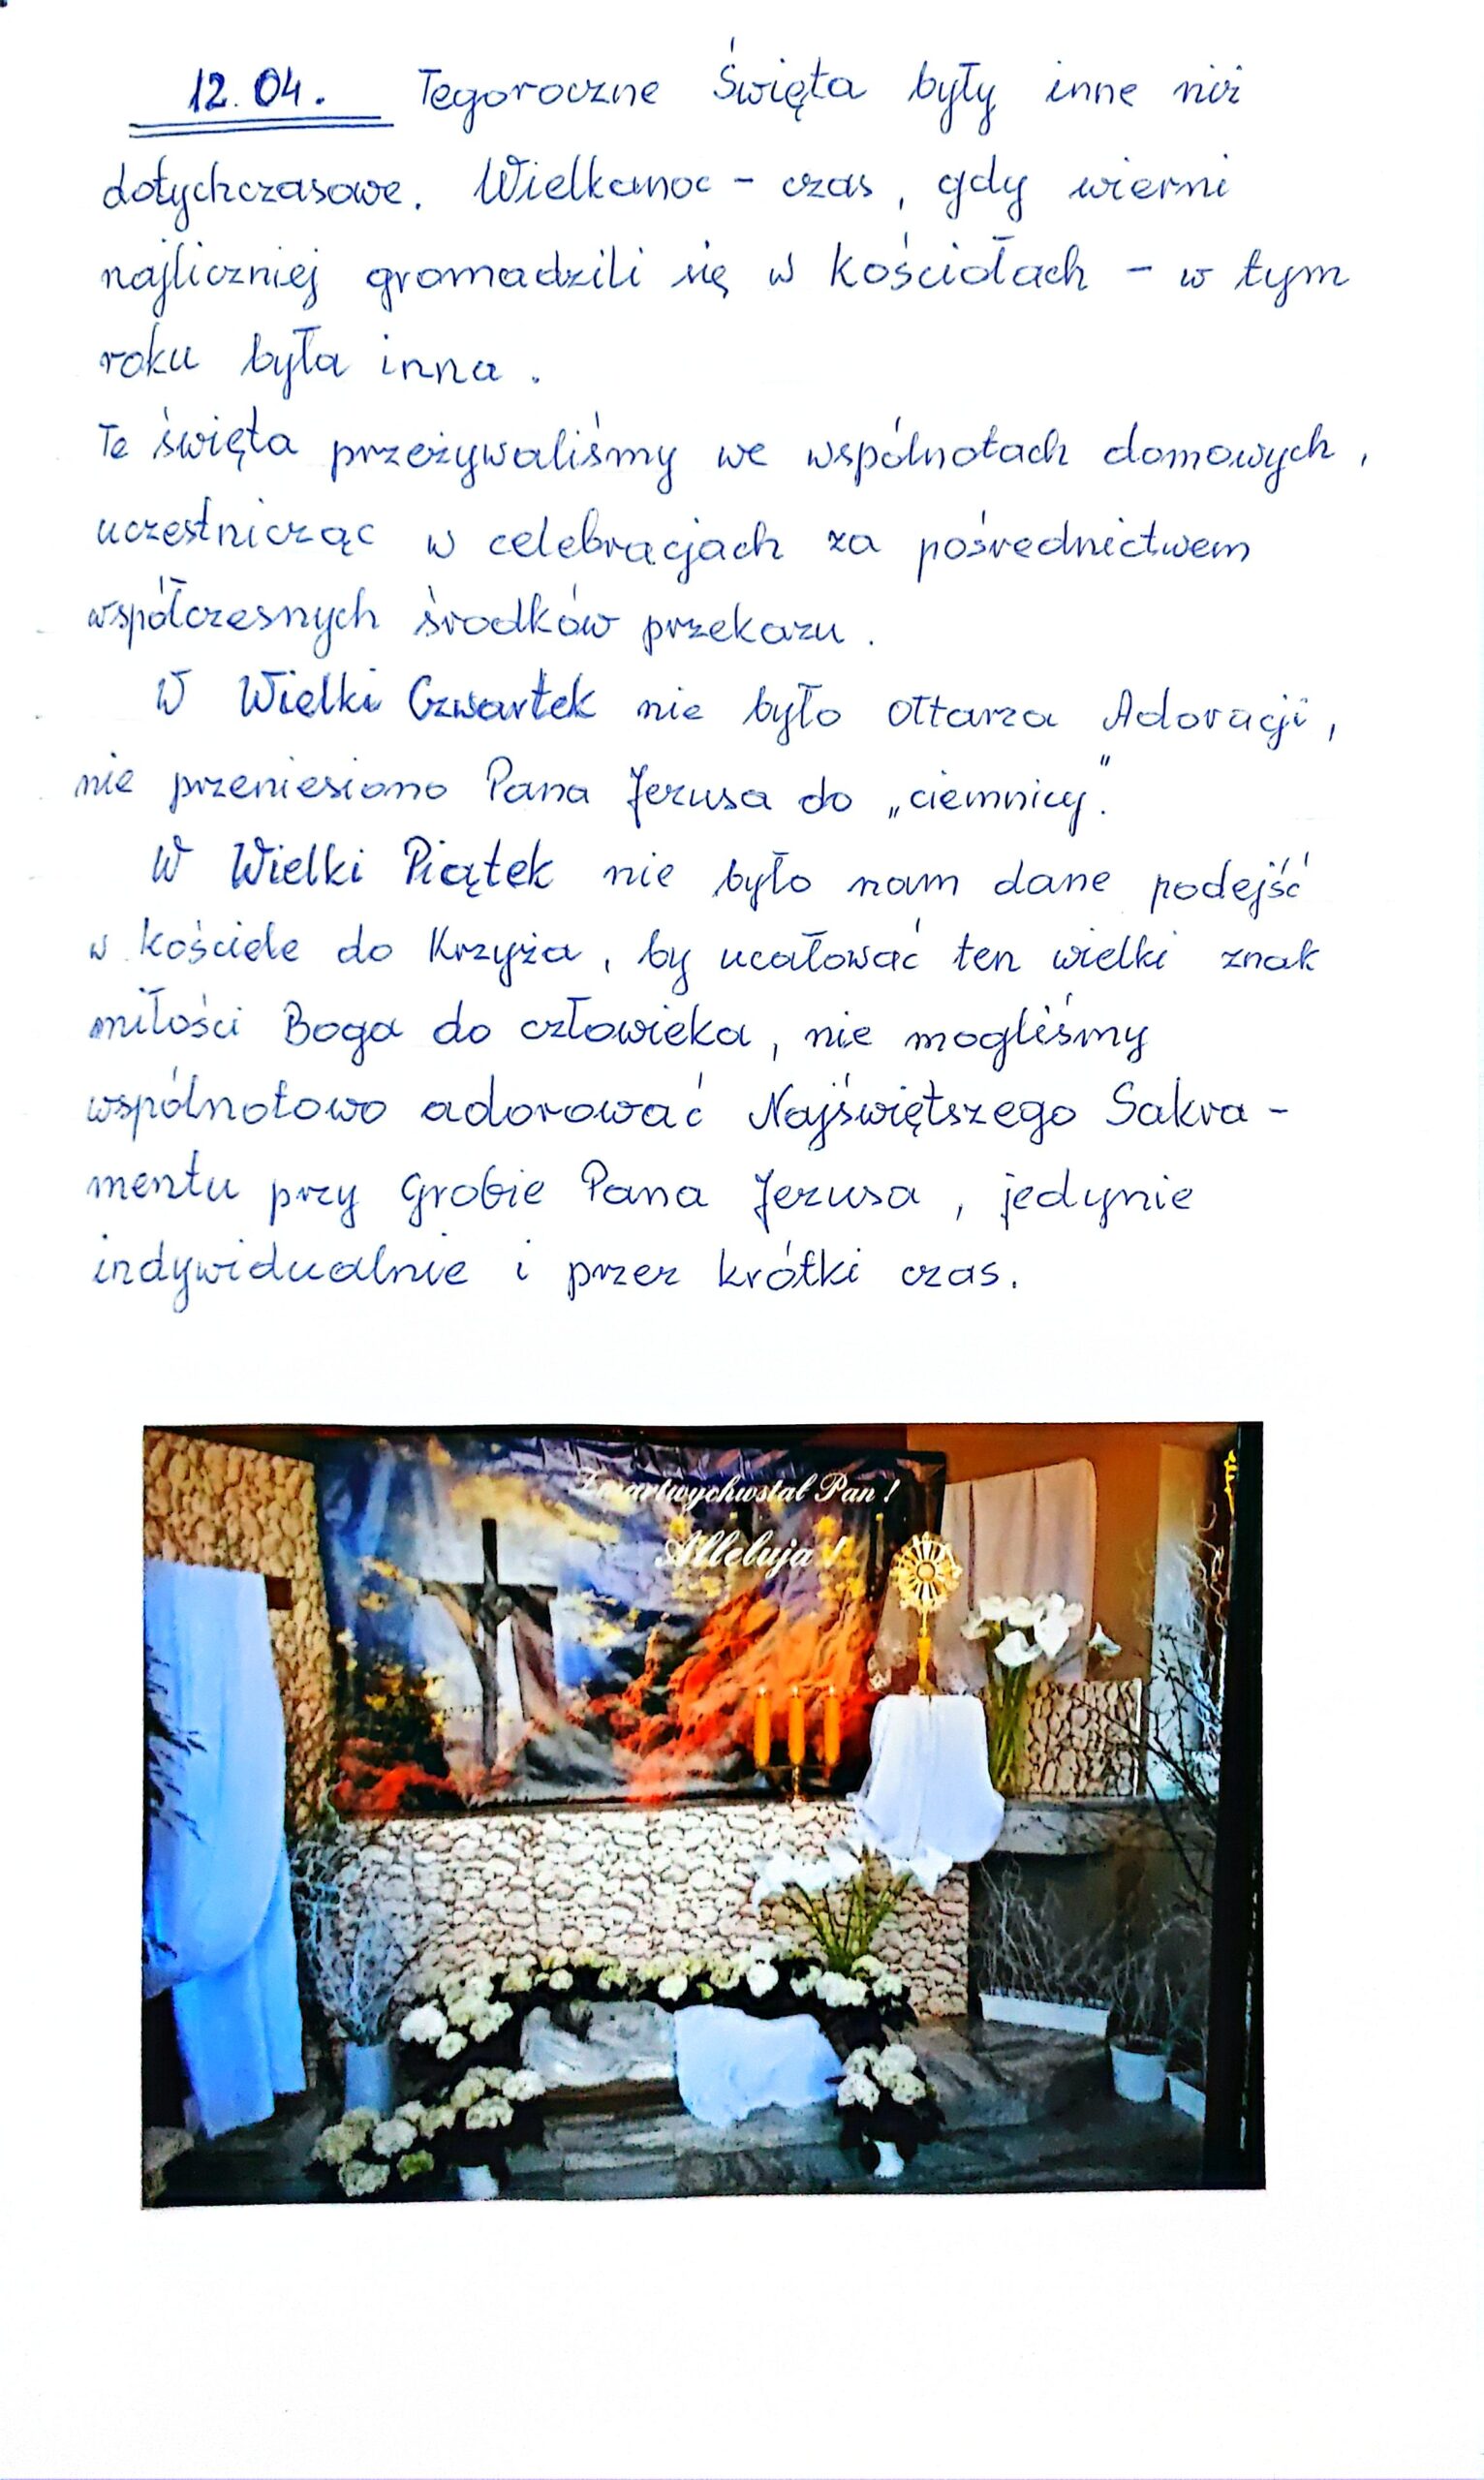 12.04. Tegoroczne Święta były inne niż
dotychczasowe. Wielkanoc - czas, gdy wierni
najliczniej gromadzili się w kościołach - w tym
roku była inna.
Te święta przeżywaliśmy we wspólnotach domowych,
uczestnicząc w celebracjach za pośrednictwem
współczesnych środków przekazu.
W Wielki Czwartek nie było Ołtarza Adoracji,
nie przeniesiono Pana Jezusa do „ciemnicy".
W Wielki Piątek nie było nam dane podejść
w kościele do Krzyża, by ucałować ten wielki znak
miłości Boga do człowieka, nie mogliśmy
wspólnotowo adorować Najświętszego Sakra-
mentu przy Grobie Pana Jezusa, jedynie
indywidualnie i przez krótki czas.
Zmartwychwstał Pan!
Alleluja!